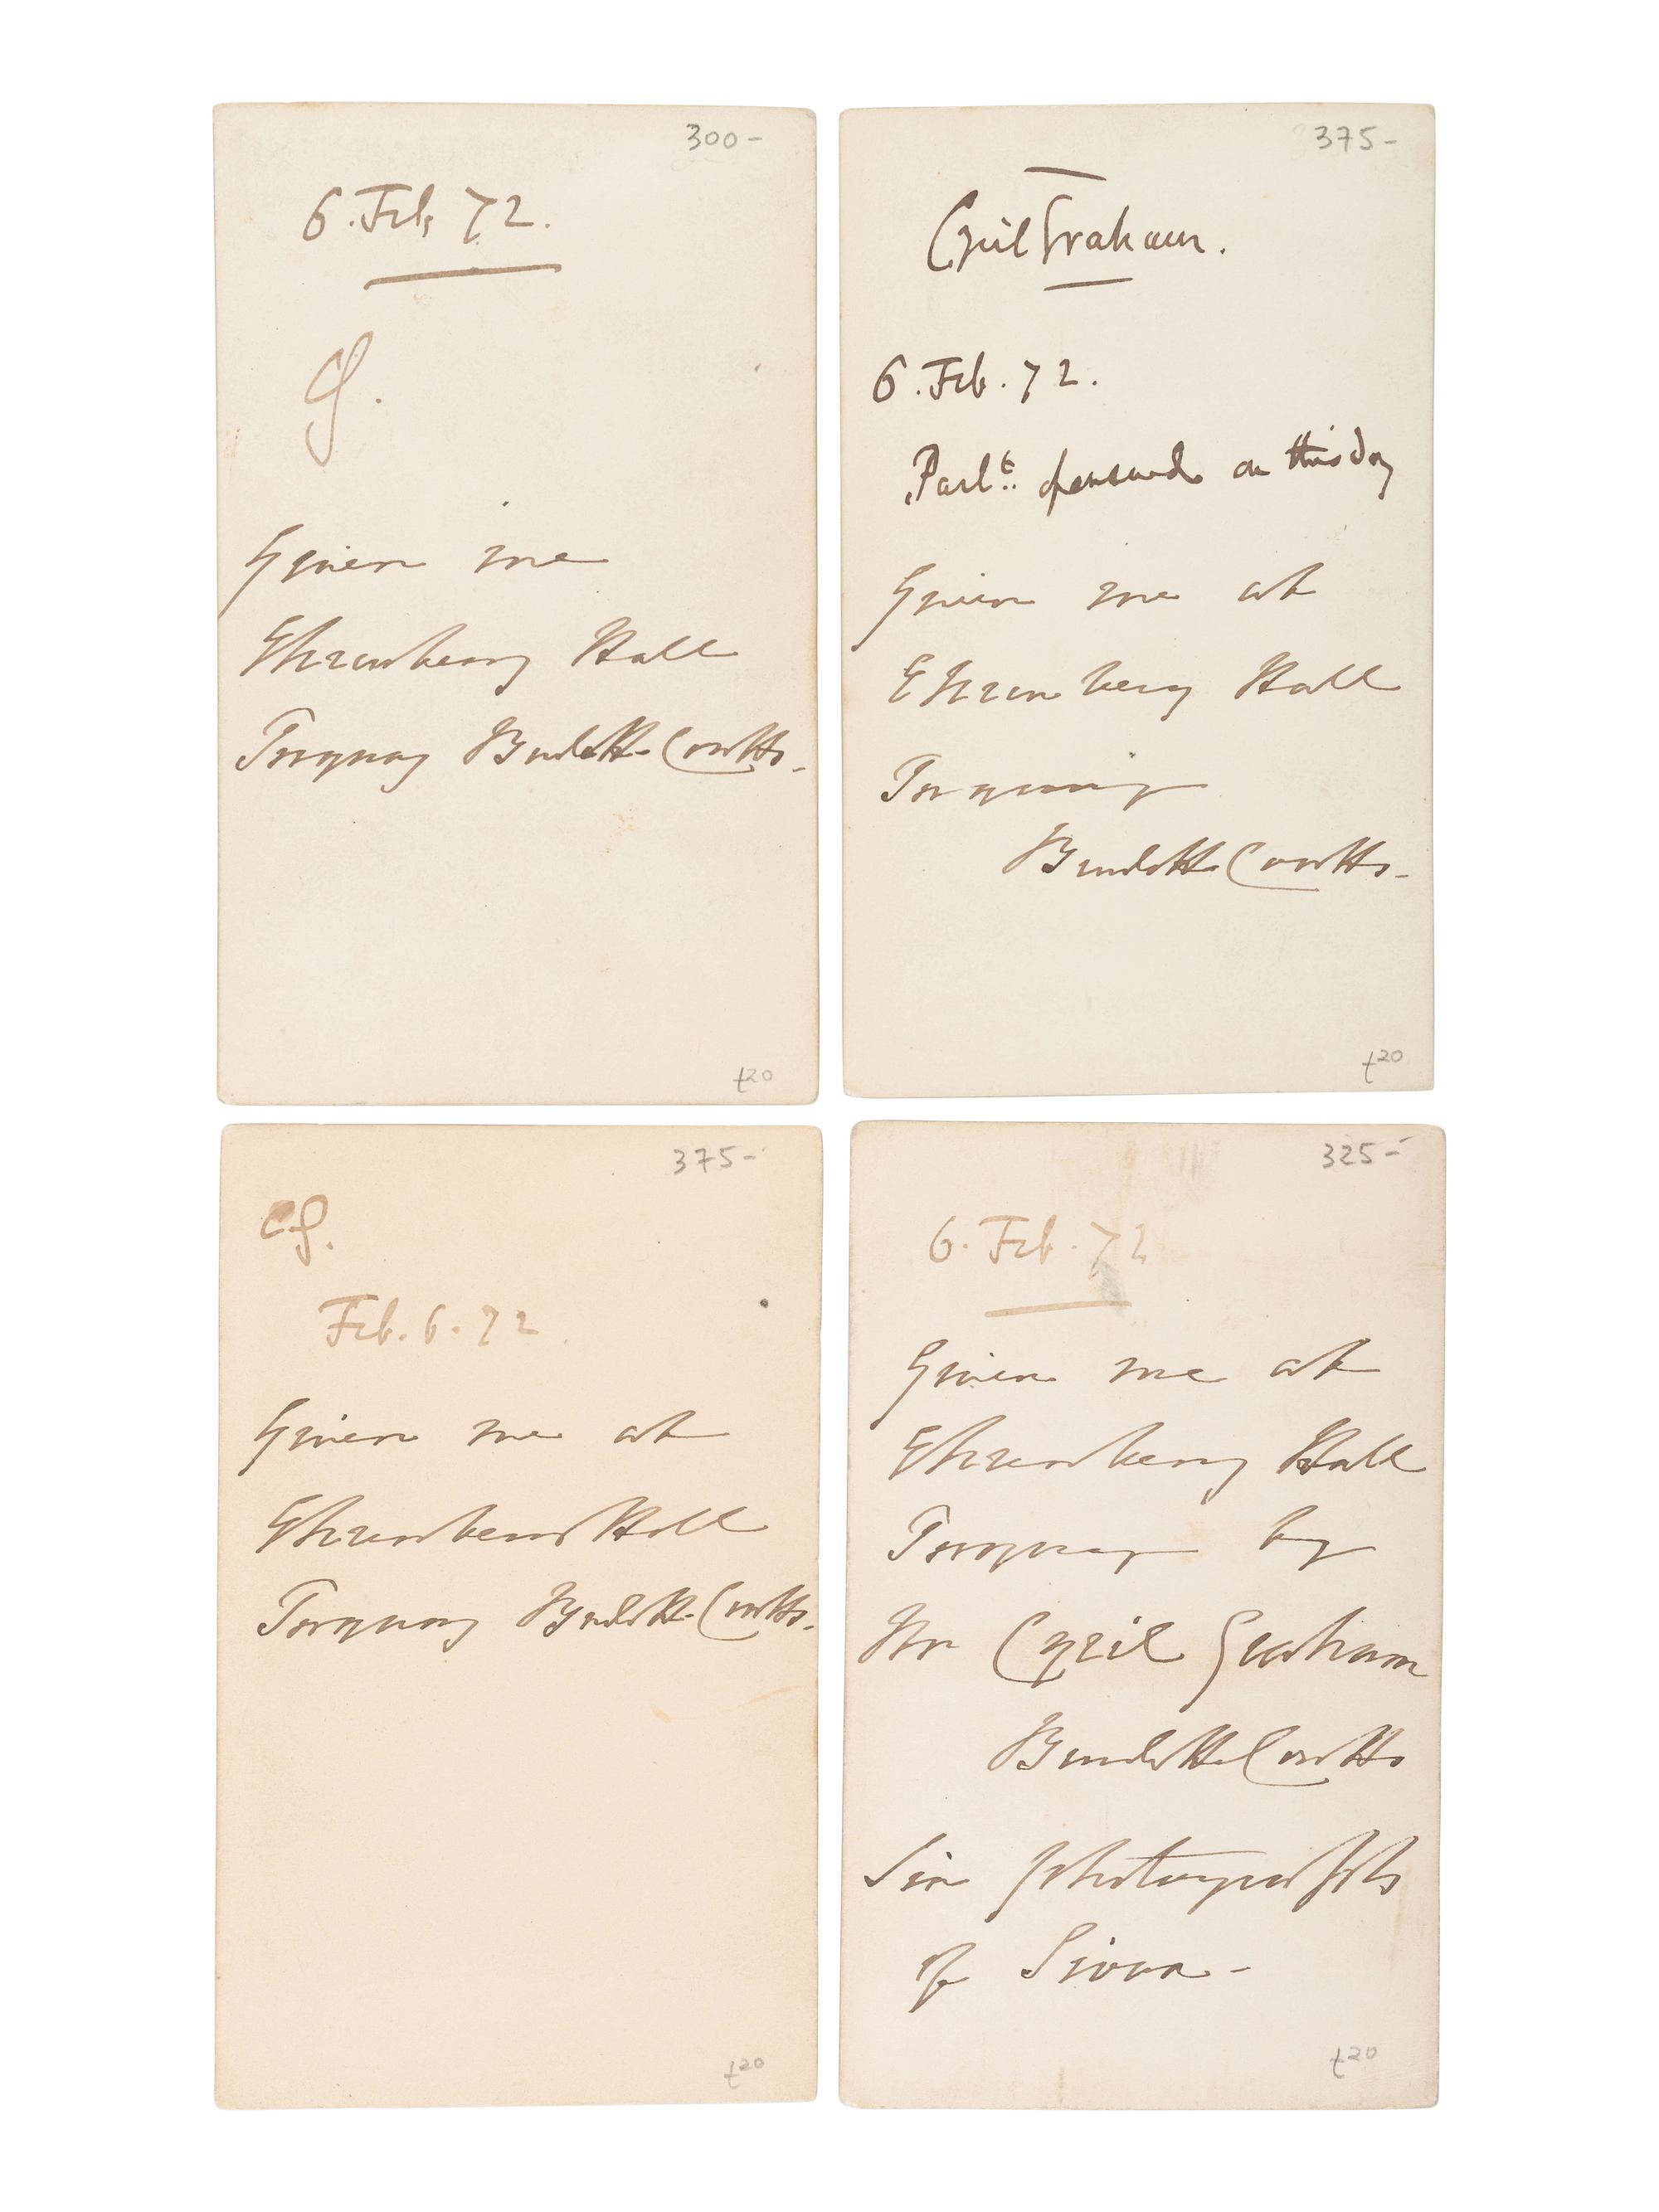 300-
6. Feb 72.
CG.
Given me
Ehrenberg Hall
Torquay Burdett-Coutts.
t20
375-
Cyril Graham.
6. Feb. 72.
Parlt. opened on this day
Given me at
Ehrenberg Hall
Torquay
Burdett Coutts.
t20
375-
CG.
Feb. 6. 72
Given me at
Ehrenberg Hall
Torquay Burdett-Coutts.
t20
325-
6. Feb. 72
Given me at
Ehrenberg Hall
Torquay by
Mr Cyril Graham
Burdett Coutts
Six photographs
of Siwa-
t20